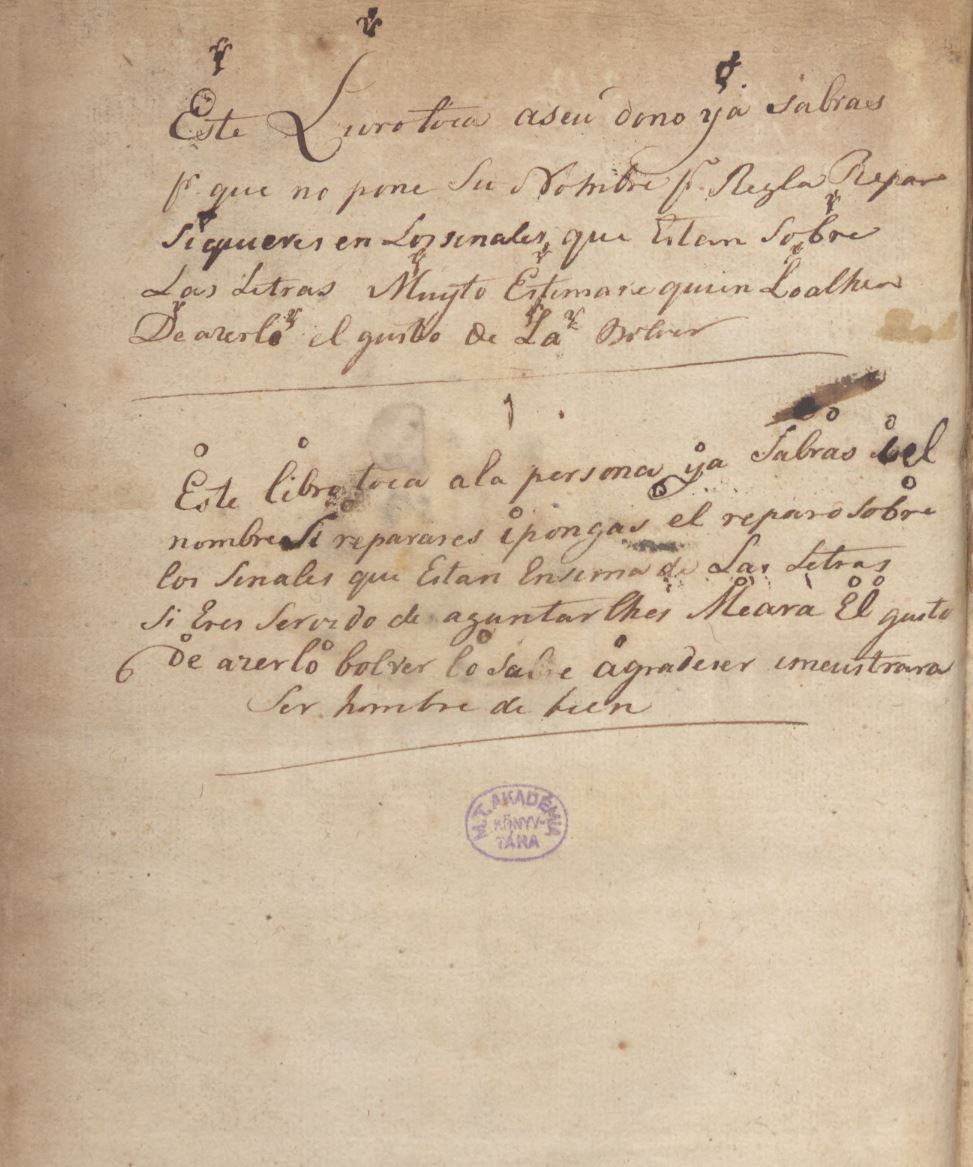 Este Livro toca a seu dono ya sabras
pr que no pone Su Nombre pr Regla Repare
Si queres en Los sinales, que Estan Sobre
Las Letras Muyto Estimare quien Lo alhea
De azerlo el gusto de La Bolver
1
Este libro toca ala persona ya Sabras el
nombre Si reparares i pongas el reparo sobre
los Sinales que Estan Ensima de Las Letras
Si Eres Servido de aguntarlhes Me ara El gusto
De azerlo bolver lo sabre agradeser i meustrara
Ser hombre de bien
M. T. AKADÉMIA
KÖNYV-
TÁRA